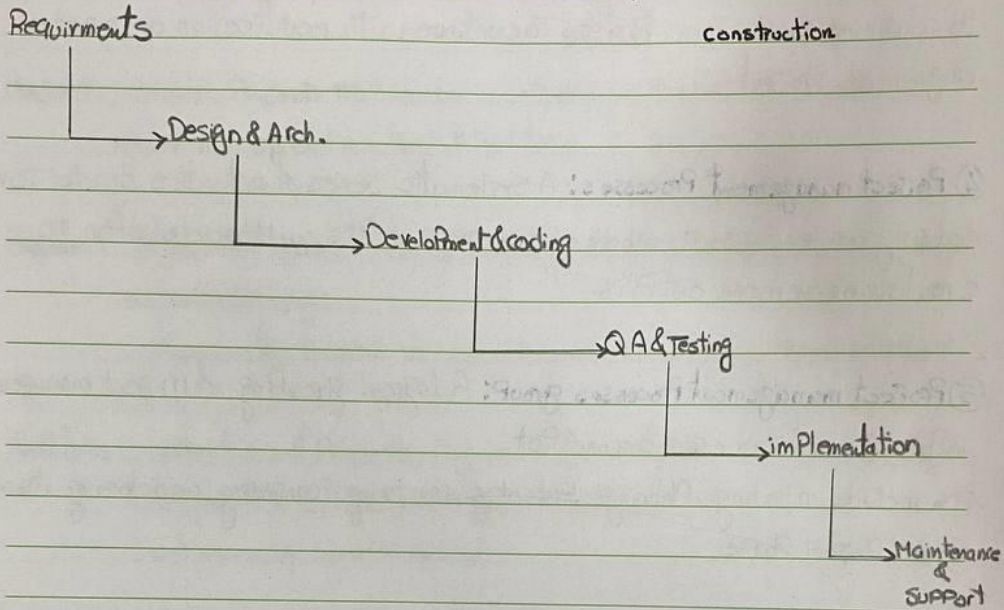 Requirments
construction
Design & Arch.
Development & coding
QA & Testing
implementation
Maintenance
&
Support